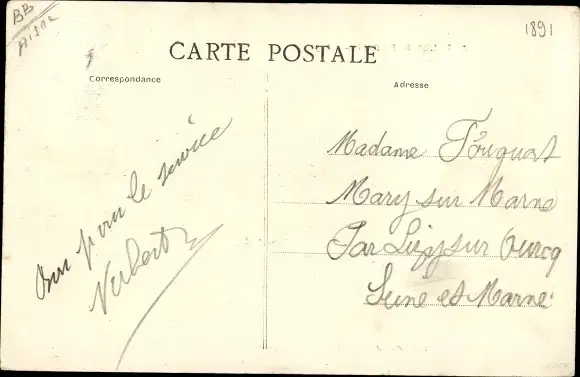 BB
Aisne
1891
CARTE POSTALE
Correspondance
Adresse
Bon pour le service
Madame Fouquat
Mary sur Marne
Par Lizy sur Ourcq
Seine et Marne